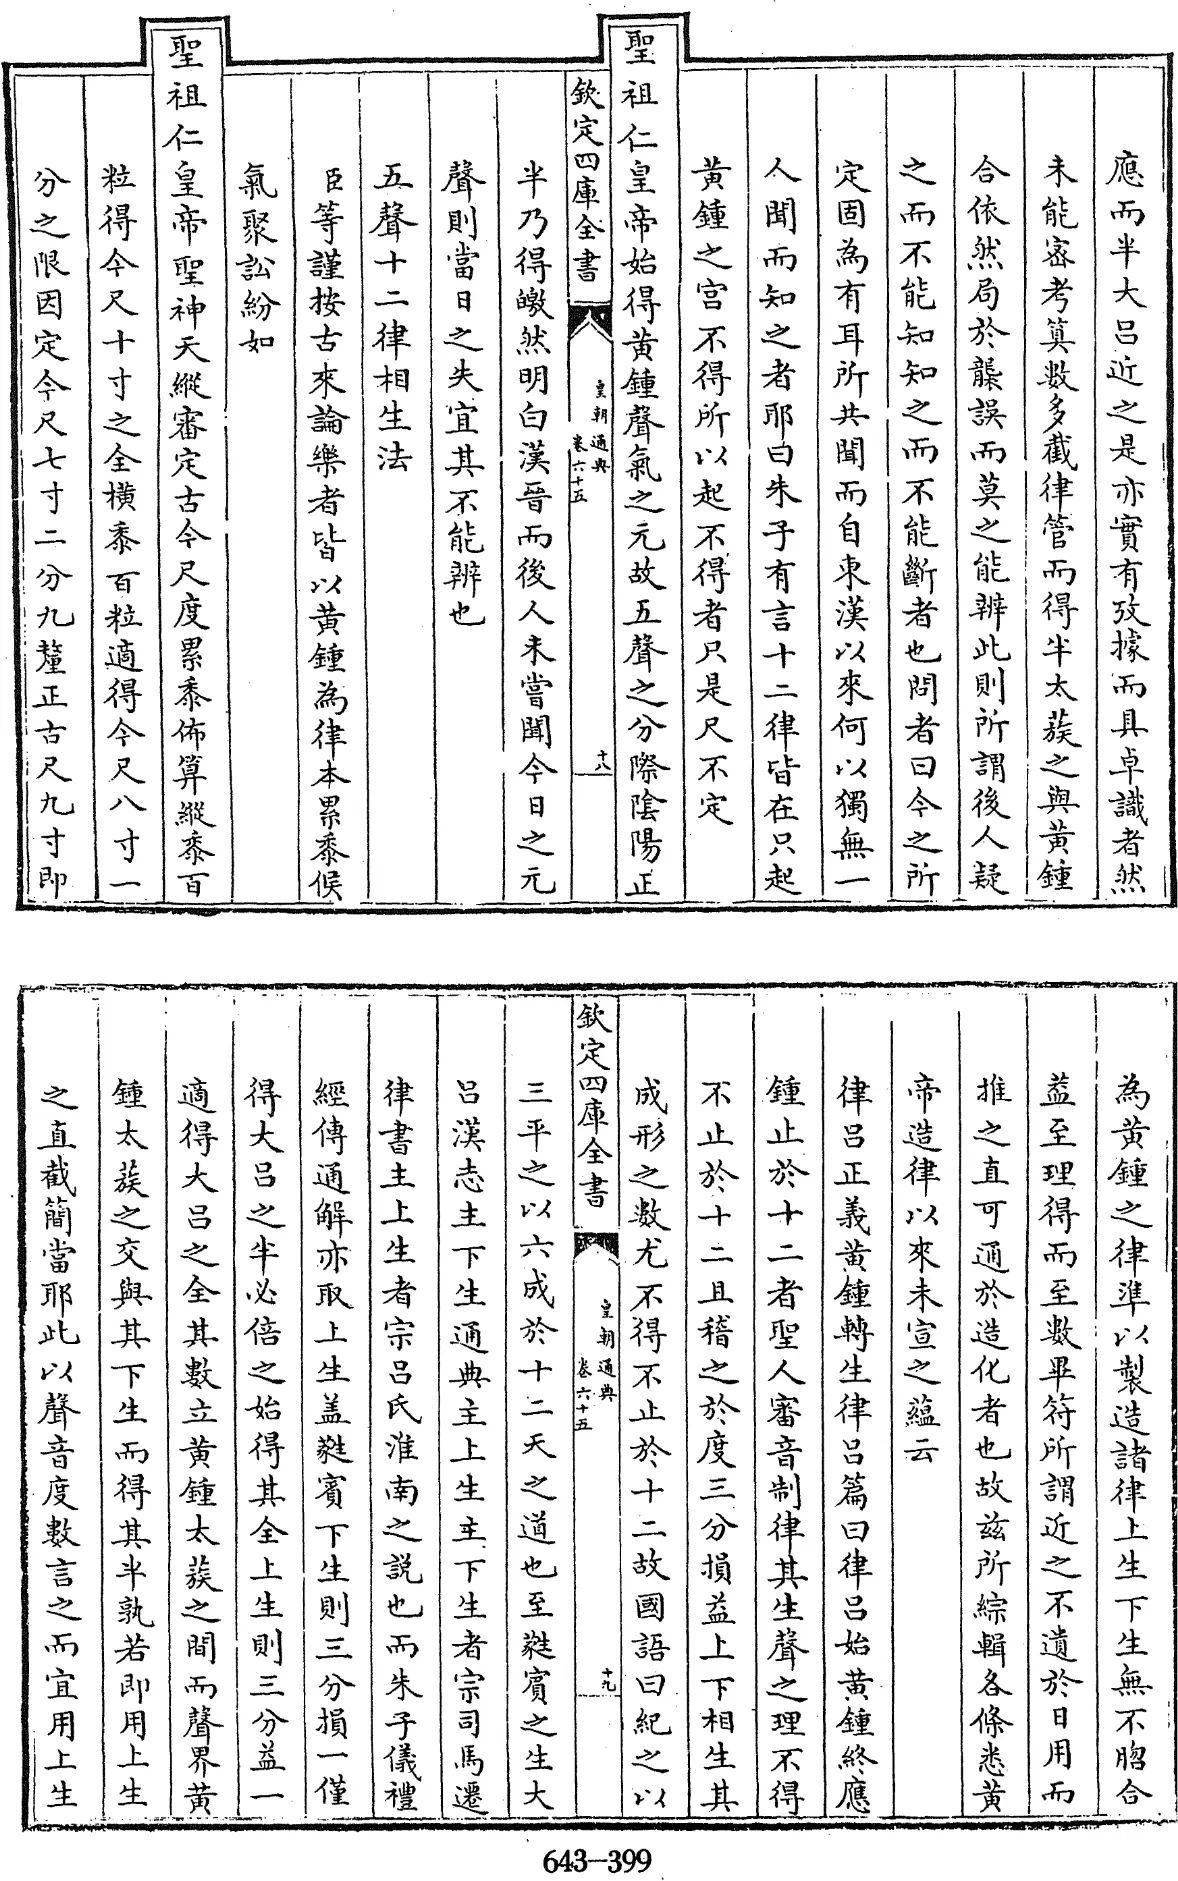 應而半大呂近之是亦實有攷據而具卓識者然
未能密考算數多截律管而得半太蔟之與黃鍾
合依然局於龯誤而莫之能辨此則所謂後人疑
之而不能知知之而不能斷者也問者曰今之所
定固為有耳所共聞而自東漢以來何以獨無一
人聞而知之者耶曰朱子有言十二律皆在只起
黃鍾之宫不得所以起不得者只是尺不定
聖祖仁皇帝始得黃鍾聲氣之元故五聲之分際陰陽正
欽定四庫全書
皇朝通典
卷六十五
十八
半乃得皦然明白漢晉而後人未嘗聞今日之元
聲則當日之失宜其不能辨也
五聲十二律相生法
臣等謹按古來論樂者皆以黃鍾為律本累黍候
氣聚訟紛如
聖祖仁皇帝聖神天縱審定古今尺度累黍佈算縱黍百
粒得今尺十寸之全橫黍百粒適得今尺八寸一
分之限因定今尺七寸二分九釐正古尺九寸即
為黃鍾之律準以製造諸律上生下生無不脗合
益至理得而至數畢符所謂近之不遺於日用而
推之直可通於造化者也故兹所綜輯各條悉黃
帝造律以來未宣之蘊云
律呂正義黃鍾轉生律呂篇曰律呂始黃鍾終應
鍾止於十二者聖人審音制律其生聲之理不得
不止於十二且稽之於度三分損益上下相生其
成形之數尤不得不止於十二故國語曰紀之以
欽定四庫全書
皇朝通典
卷六十五
十九
三平之以六成於十二天之道也至蕤賓之生大
呂漢志主下生通典主上生主下生者宗司馬遷
律書主上生者宗呂氏淮南之説也而朱子儀禮
經傳通解亦取上生盖蕤賓下生則三分損一僅
得大呂之半必倍之始得其全上生則三分益一
適得大呂之全其數立黃鍾太蔟之間而聲界黃
鍾太蔟之交與其下生而得其半孰若即用上生
之直截簡當耶此以聲音度數言之而宜用上生
643-399